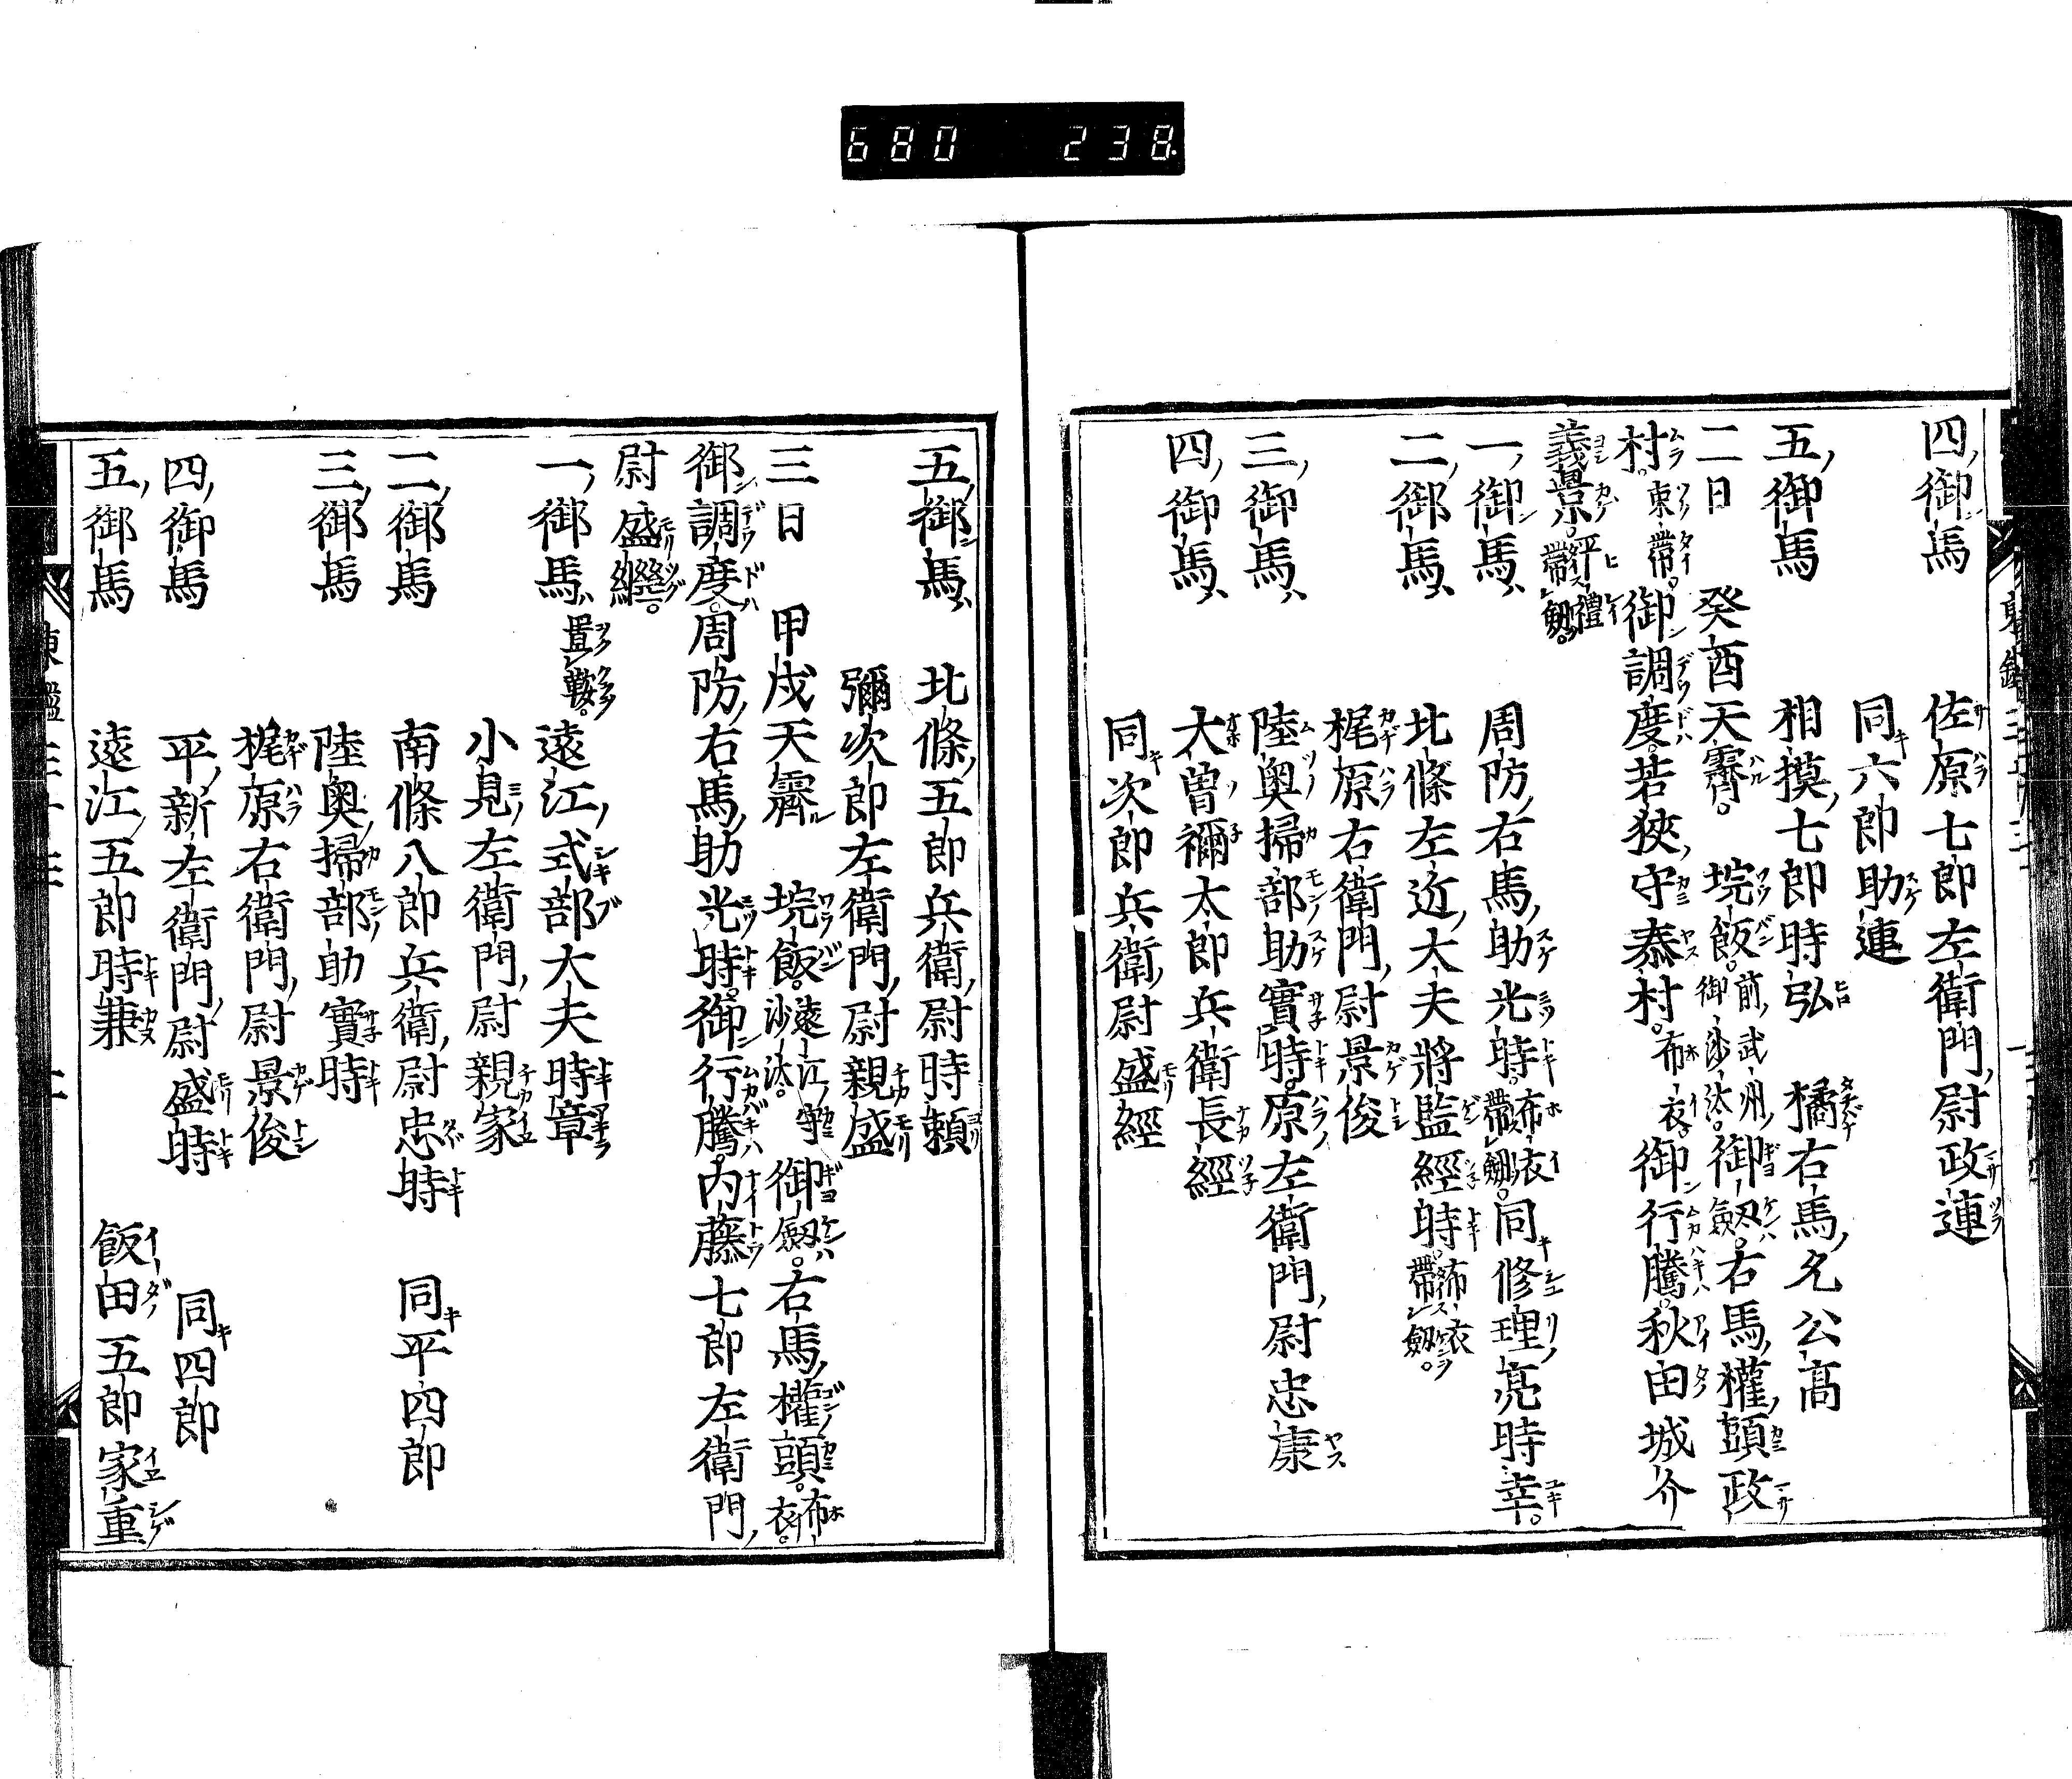 680 238
四御馬 佐原七郎左衛門尉政連
同六郎助連
五御馬 相摸七郎時弘 橘右馬允公高
二日 癸酉天霽。垸飯。前武州御沙汰。御釼。右馬權頭政
村。束帶。御調度。若狹守泰村。布衣。御行騰。秋田城介
義景。平禮帶釼。
一御馬 周防右馬助光時。布衣帶釼。同修理亮時幸。
二御馬 北條左近大夫將監經時。布衣帶釼。
梶原右衛門尉景俊
三御馬 陸奥掃部助實時。原左衛門尉忠康
四御馬 大曽禰太郎兵衛長經
同次郎兵衛尉盛經
五御馬 北條五郎兵衛尉時頼
彌次郎左衛門尉親盛
三日 甲戌天霽 垸飯。遠江守沙汰。御釼。右馬權頭。布衣。
御調度。周防右馬助光時。御行騰。内藤七郎左衛門
尉盛繼。
一御馬 置鞍。 遠江式部大夫時章
小見左衛門尉親家
二御馬 南條八郎兵衛尉忠時 同平四郎
三御馬 陸奥掃部助實時
梶原右衛門尉景俊
四御馬 平新左衛門尉盛時 同四郎
五御馬 遠江五郎時兼 飯田五郎家重